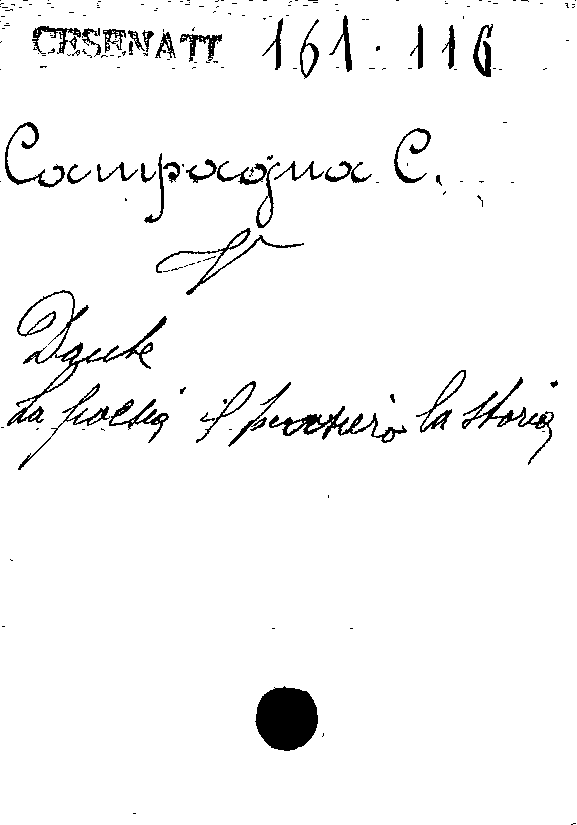 CESENATT 161.116
Campagna C.
Dante
La poesia il pensiero la storia